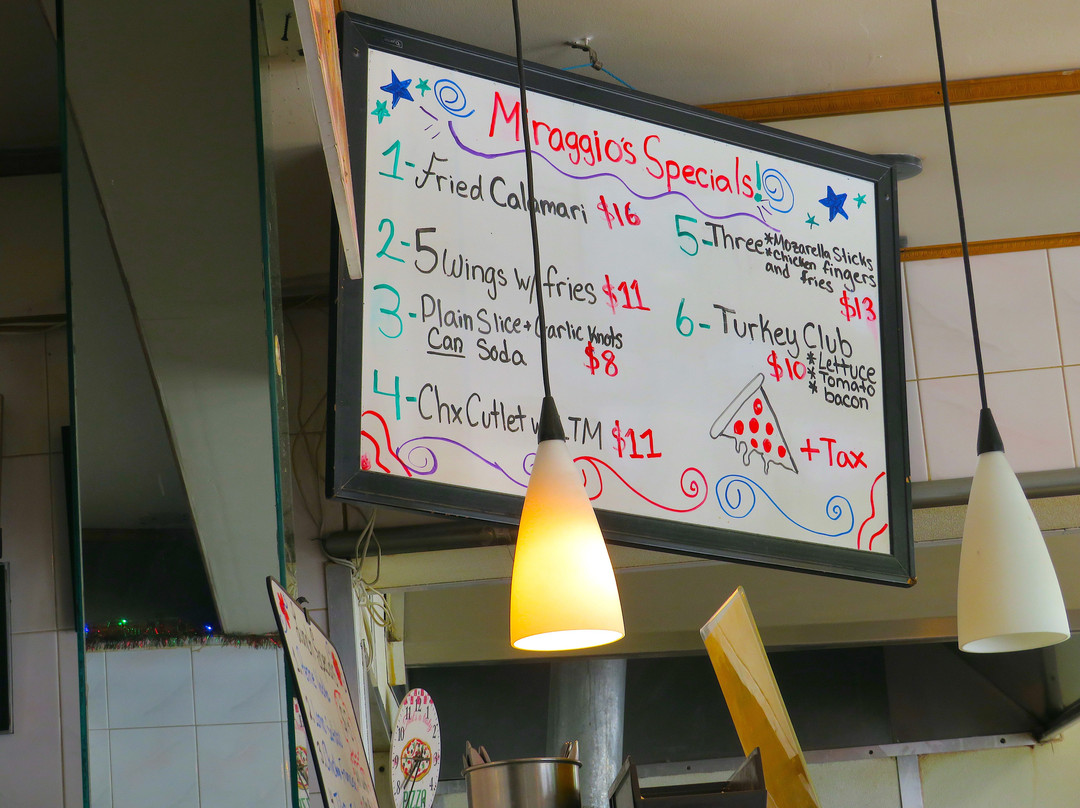 Miraggio's Specials!
1-Fried Calamari $16
2-5 wings w/ fries $11
3-Plain Slice + Garlic Knots
Can Soda $8
4-Chx Cutlet w LTM $11
5-Three *Mozarella Sticks
*chicken fingers
and fries
$13
6-Turkey Club
$10 *Lettuce
*Tomato
* bacon
+Tax
11 12 1
PIZZA